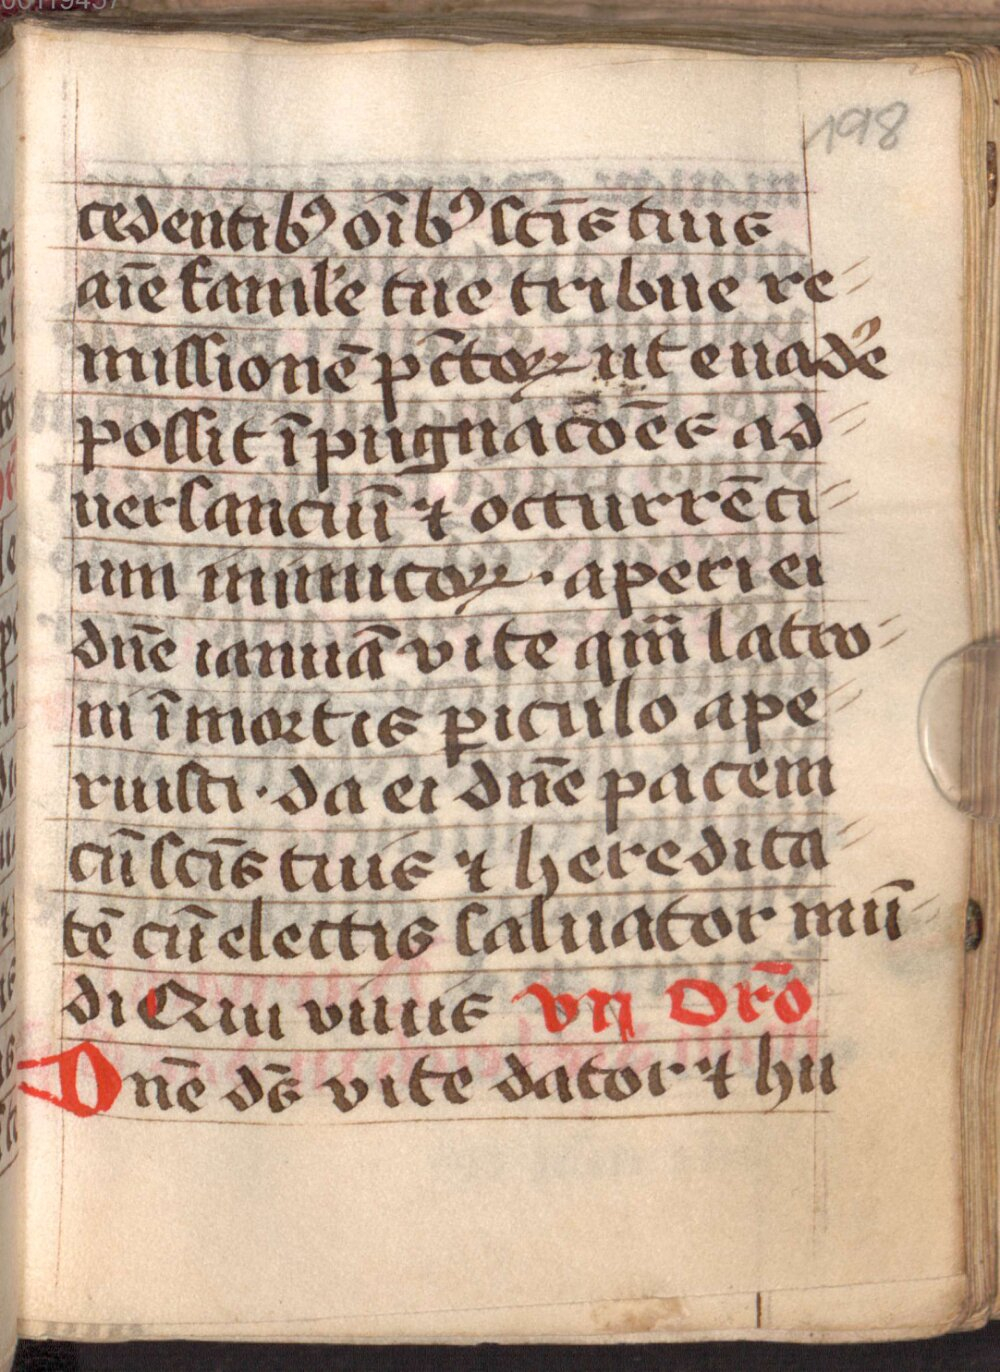 198
cedentibꝰ oı̄bꝰ scı̄s tuis
aīe famul'e tue tribue re⸗
missionē pc̄toꝝ ut euad'e
possit īpugnac̄oēs ad⸗
uersanciū ⁊ occurrēci⸗
um inimicoꝝ · aperi ei
dn̄e ianuā vite qm̄ latro⸗
ni ī mortis ꝑiculo ape⸗
ruisti · da ei dn̄e pacem
cū scı̄s tuis ⁊ heredita⸗
tē cū electis saluator mū⸗
di Qui viuis vij Orō
Dn̄e ds̄ vite dator ⁊ hu